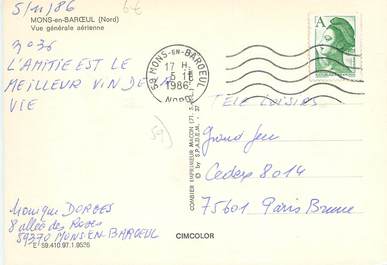 5/11/86
6€
MONS-en-BARŒUL (Nord)
Vue générale aérienne
3036
L'AMITIE EST LE
MEILLEUR VIN DE LA
VIE
59 MONS-EN-BAROEUL
17 H
5 11
1986
NORD
A
59)
TELE LOISIRS
Grand Jeu
Cedex 8014
75601 Paris Brune
COMBIER IMPRIMEUR MACON
© by S.P.A.D.E.M.
Monique DORGES
8 allée des Roses
59370 MONS EN BAROEUL
E 59.410.97.1.9526
CIMCOLOR